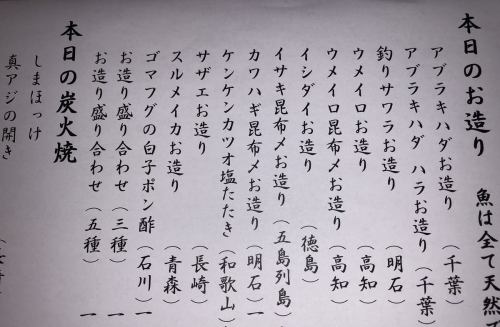 本日のお造り 魚は全て天然
アブラキハダお造り（千葉）
アブラキハダ ハラお造り（千葉）
釣りサワラお造り（明石）
ウメイロお造り（高知）
ウメイロ昆布〆お造り（高知）
イシダイお造り（徳島）
イサキ昆布〆お造り（五島列島）
カワハギ昆布〆お造り（明石）一
ケンケンカツオ塩たたき（和歌山）
サザエお造り（長崎）
スルメイカお造り（青森）
ゴマフグの白子ポン酢（石川）一
お造り盛り合わせ（三種）
お造り盛り合わせ（五種）一
本日の炭火焼
しまほっけ
真アジの開き